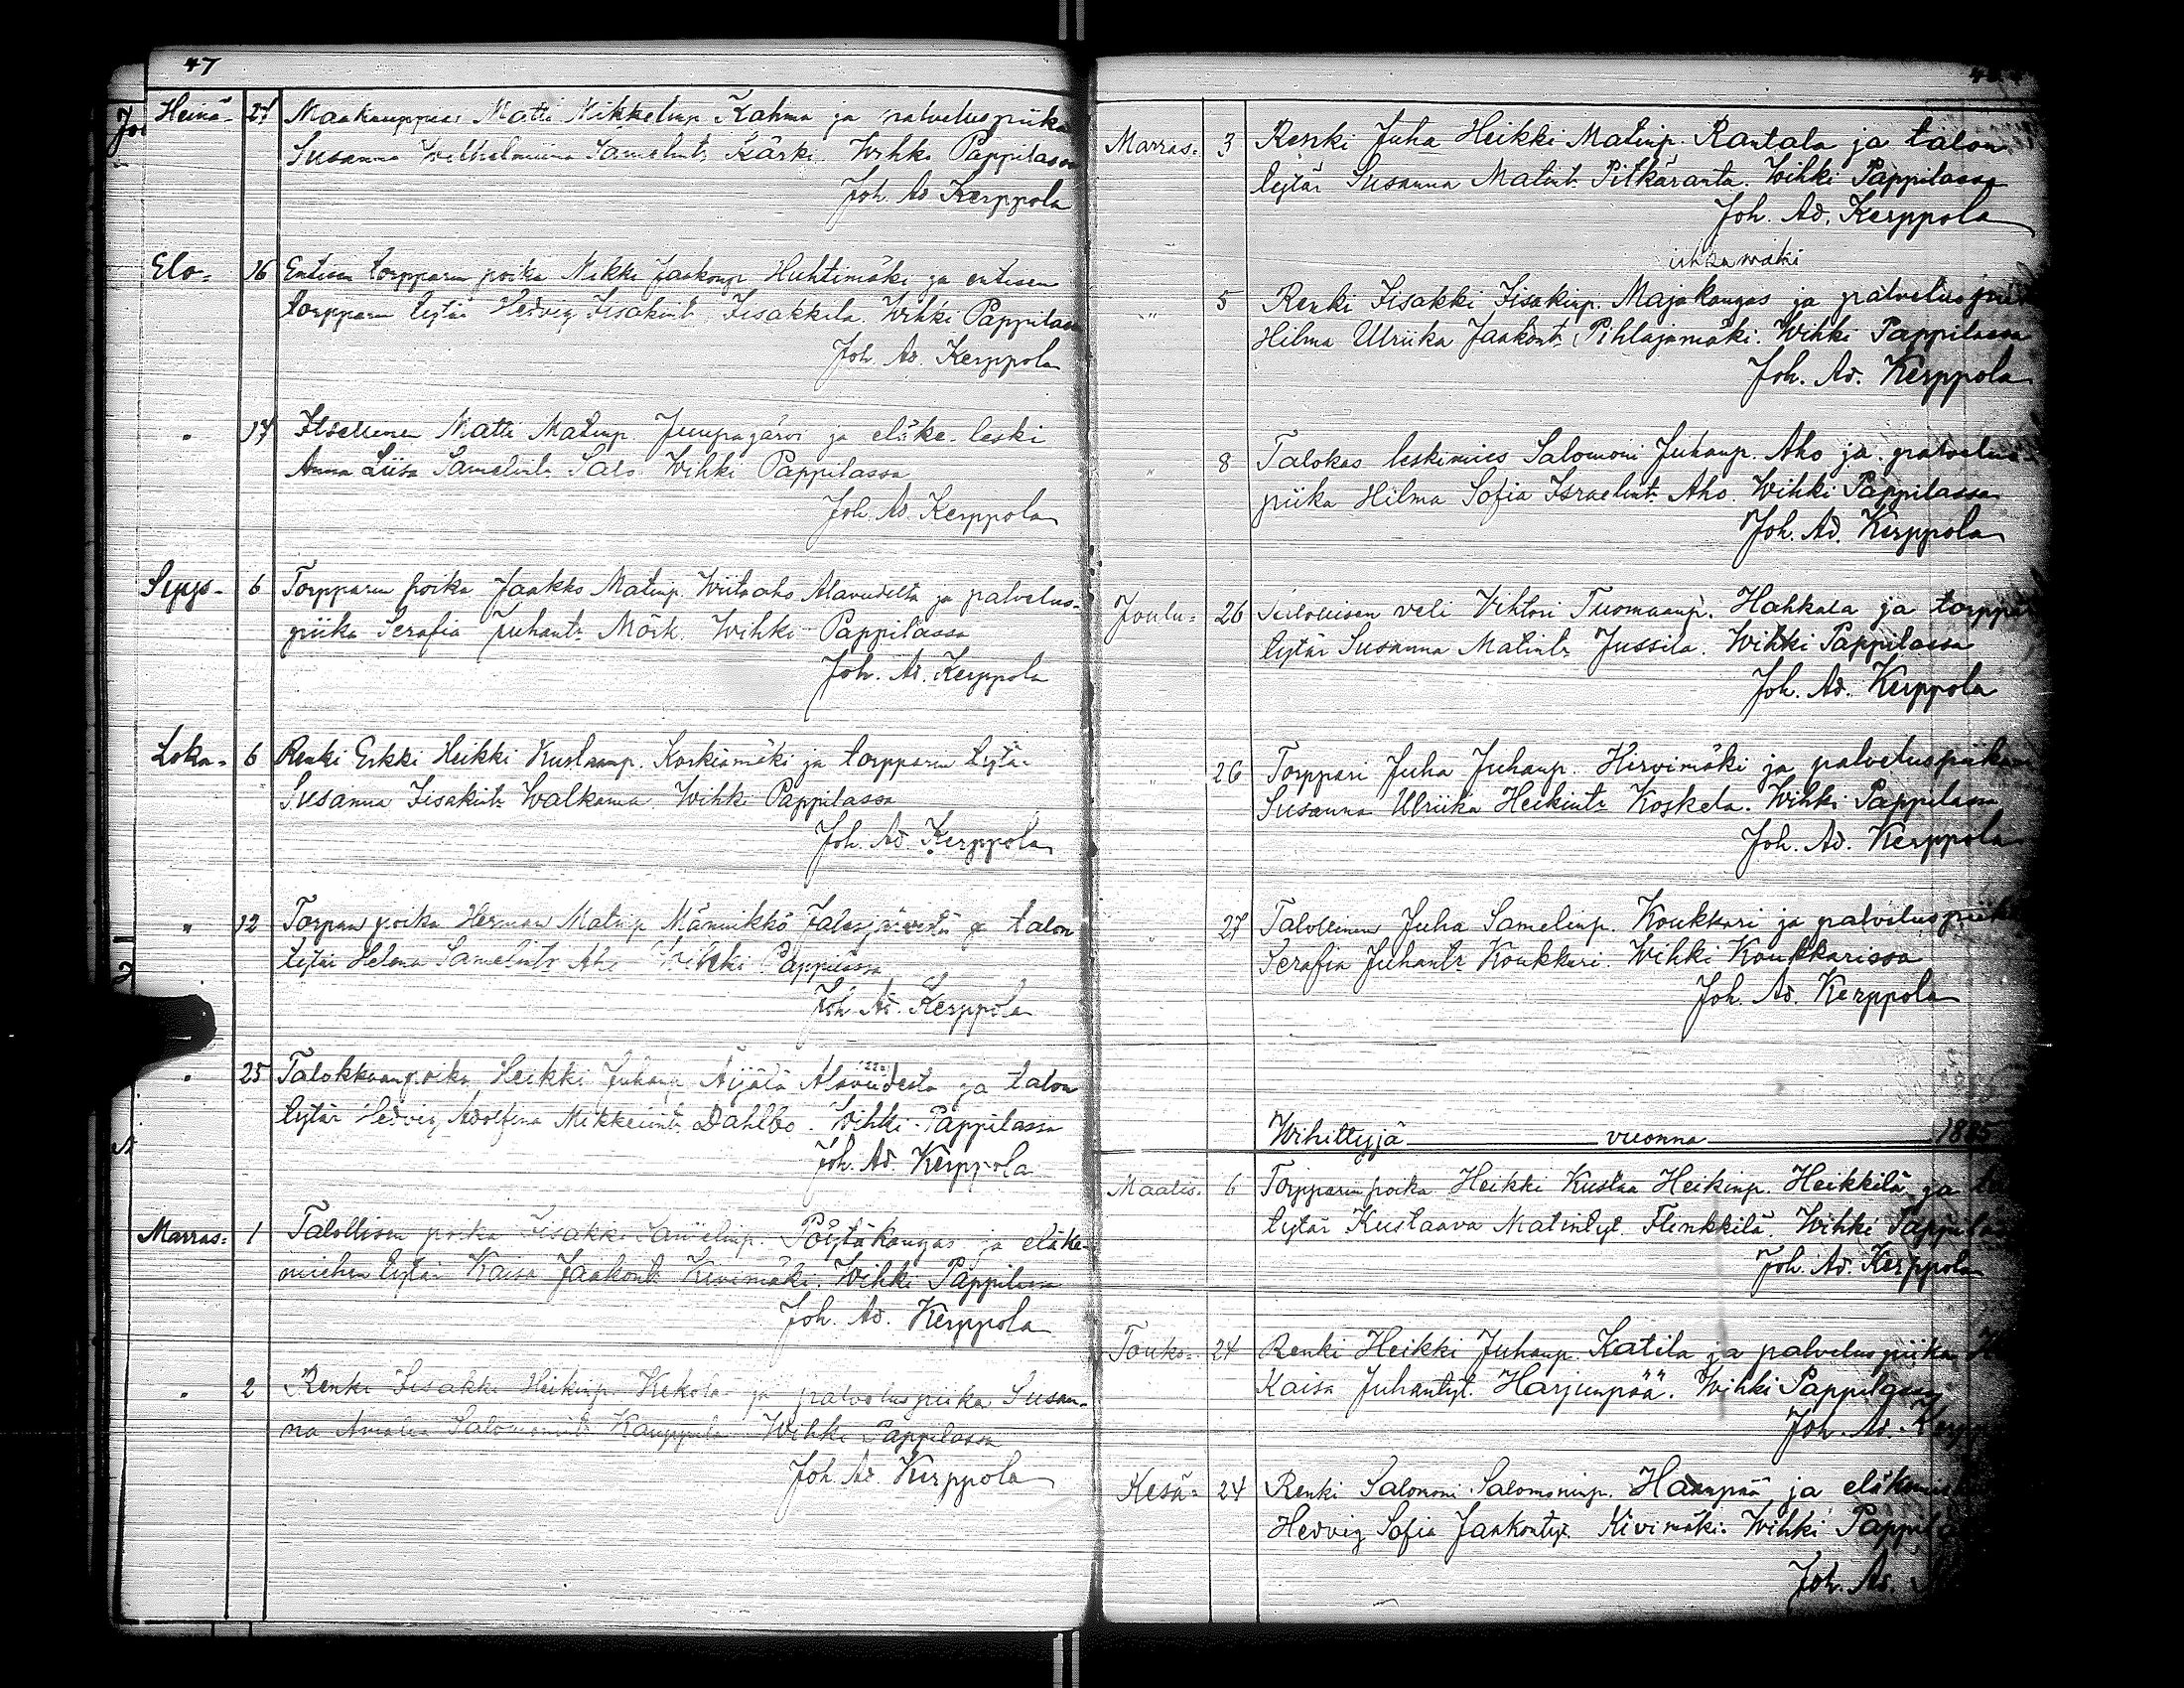 47
Heinä- 27 Maakauppias Matti Mikkelinp. Kahma ja palveluspiika
Susanna Wilhelmiina Samelintr Kärki. Wihki Pappilassa
Joh. Ad. Kerppola
Elo- 16 Entisen torpparin poika Nikki Jaakonp. Huhtimäki ja entisen
torpparin tytär Hedvig Iisakintr. Iisakkila. Wihki Pappilassa
Joh. Ad. Kerppola
" 17 Itsellinen Matti Matinp. Juupajärvi ja eläke-leski
Anna Liisa Samelintr. Salo. Wihki Pappilassa
Joh. Ad. Kerppola
Syys- 6 Torpparin poika Jaakko Matinp. Wiitaaho Alavudelta ja palvelus-
piika Serafia Juhantr. Mörk. Wihki Pappilassa
Joh. Ad. Kerppola
Loka- 6 Renki Erkki Heikki Kustaanp. Korkiamäki ja torpparin tytär
Susanna Iisakintr Walkama. Wihki Pappilassa
Joh. Ad. Kerppola
" 12 Torpan poika Herman Matinp. Männikkö Jalasjärveltä ja talon
tytär Helena Samelintr Aho. Wihki Pappilassa
Joh. Ad. Kerppola
" 25 Talokkaanpoika Heikki Juhanp. Äijälä Alavudesta ja talon
tytär Hedvig Adolfina Mikkelintr. Dahlbo. Wihki Pappilassa
Joh. Ad. Kerppola
Marras- 1 Talollisen poika Iisakki Samelinp. Pöytäkangas ja eläke-
miehen tytär Kaisa Jaakontr. Kivimäki. Wihki Pappilassa
Joh. Ad. Kerppola
" 2 Renki Iisakki Heikinp. Kekola ja palveluspiika Susan-
na Amalia Salomonintr. Kauppila. Wihki Pappilassa
Joh. Ad. Kerppola
Marras- 3 Renki Juha Heikki Matinp. Rantala ja talon
tytär Susanna Matintr. Pitkäranta. Wihki Pappilassa
Joh. Ad. Kerppola
" 5 Renki Iisakki Iisakinp. Majakangas ja palvelus
Hilma Ulriika Jaakontr. Pihlajamäki. Wihki Pappilassa
Joh. Ad. Kerppola
" 8 Talokas leskimies Salomoni Juhanp. Aho ja palvelus-
piika Hilma Sofia Israelintr. Aho. Wihki Pappilassa
Joh. Ad. Kerppola
Joulu- 26 Talollisen veli Vihtori Tuomaanp. Hahkala ja torpparin
tytär Susanna Matintr. Jussila. Wihki Pappilassa
Joh. Ad. Kerppola
" 26 Torppari Juha Juhanp. Hirvimäki ja palveluspiika
Susanna Ulriika Heikintr. Koskela. Wihki Pappilassa
Joh. Ad. Kerppola
" 27 Talollinen Juha Samelinp. Koukkari ja palveluspiika
Serafia Juhantr. Koukkari. Wihki Koukkarissa
Joh. Ad. Kerppola
Wihittyjä vuonna 1885
Maalis. 6 Torpparin poika Heikki Kustaa Heikinp. Heikkilä ja
tytär Kustaava Matintyt. Flinkkilä. Wihki Pappilassa
Joh. Ad. Kerppola
Touko- 24 Renki Heikki Juhanp. Katila ja palveluspiika
Kaisa Juhantyt. Harjunpää. Wihki Pappilassa
Joh. Ad. Kerppola
Kesä- 24 Renki Salomoni Salomoninp. Haanpää ja
Hedvig Sofia Jaakontyt. Kivimäki. Wihki Pappilassa
Joh. Ad.